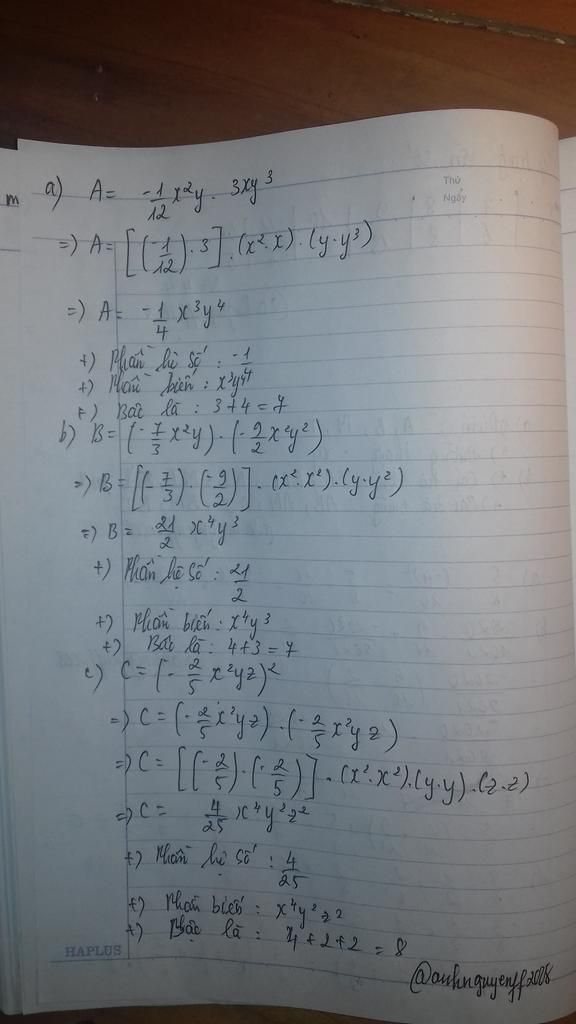 m
Thứ
Ngày
a) A = -1/12 x²y . 3xy³
=) A = [(-1/12) . 3] . (x² . x) . (y . y³)
=) A = -1/4 x³y⁴
+) Phần hệ số : -1/4
+) Phần biến : x³y⁴
+) Bậc là : 3+4 = 7
b) B = (-7/3 x²y) . (-9/2 x²y²)
=) B = [(-7/3) . (-9/2)] . (x² . x²) . (y . y²)
=) B = 21/2 x⁴y³
+) Phần hệ số : 21/2
+) Phần biến : x⁴y³
+) Bậc là : 4+3 = 7
c) C = (-2/5 x²yz)²
=) C = (-2/5 x²yz) . (-2/5 x²yz)
=) C = [(-2/5) . (-2/5)] . (x² . x²) . (y . y) . (z . z)
=) C = 4/25 x⁴y²z²
+) Phần hệ số : 4/25
+) Phần biến : x⁴y²z²
+) Bậc là : 4+2+2 = 8
HAPLUS
@anhnguyenff2008